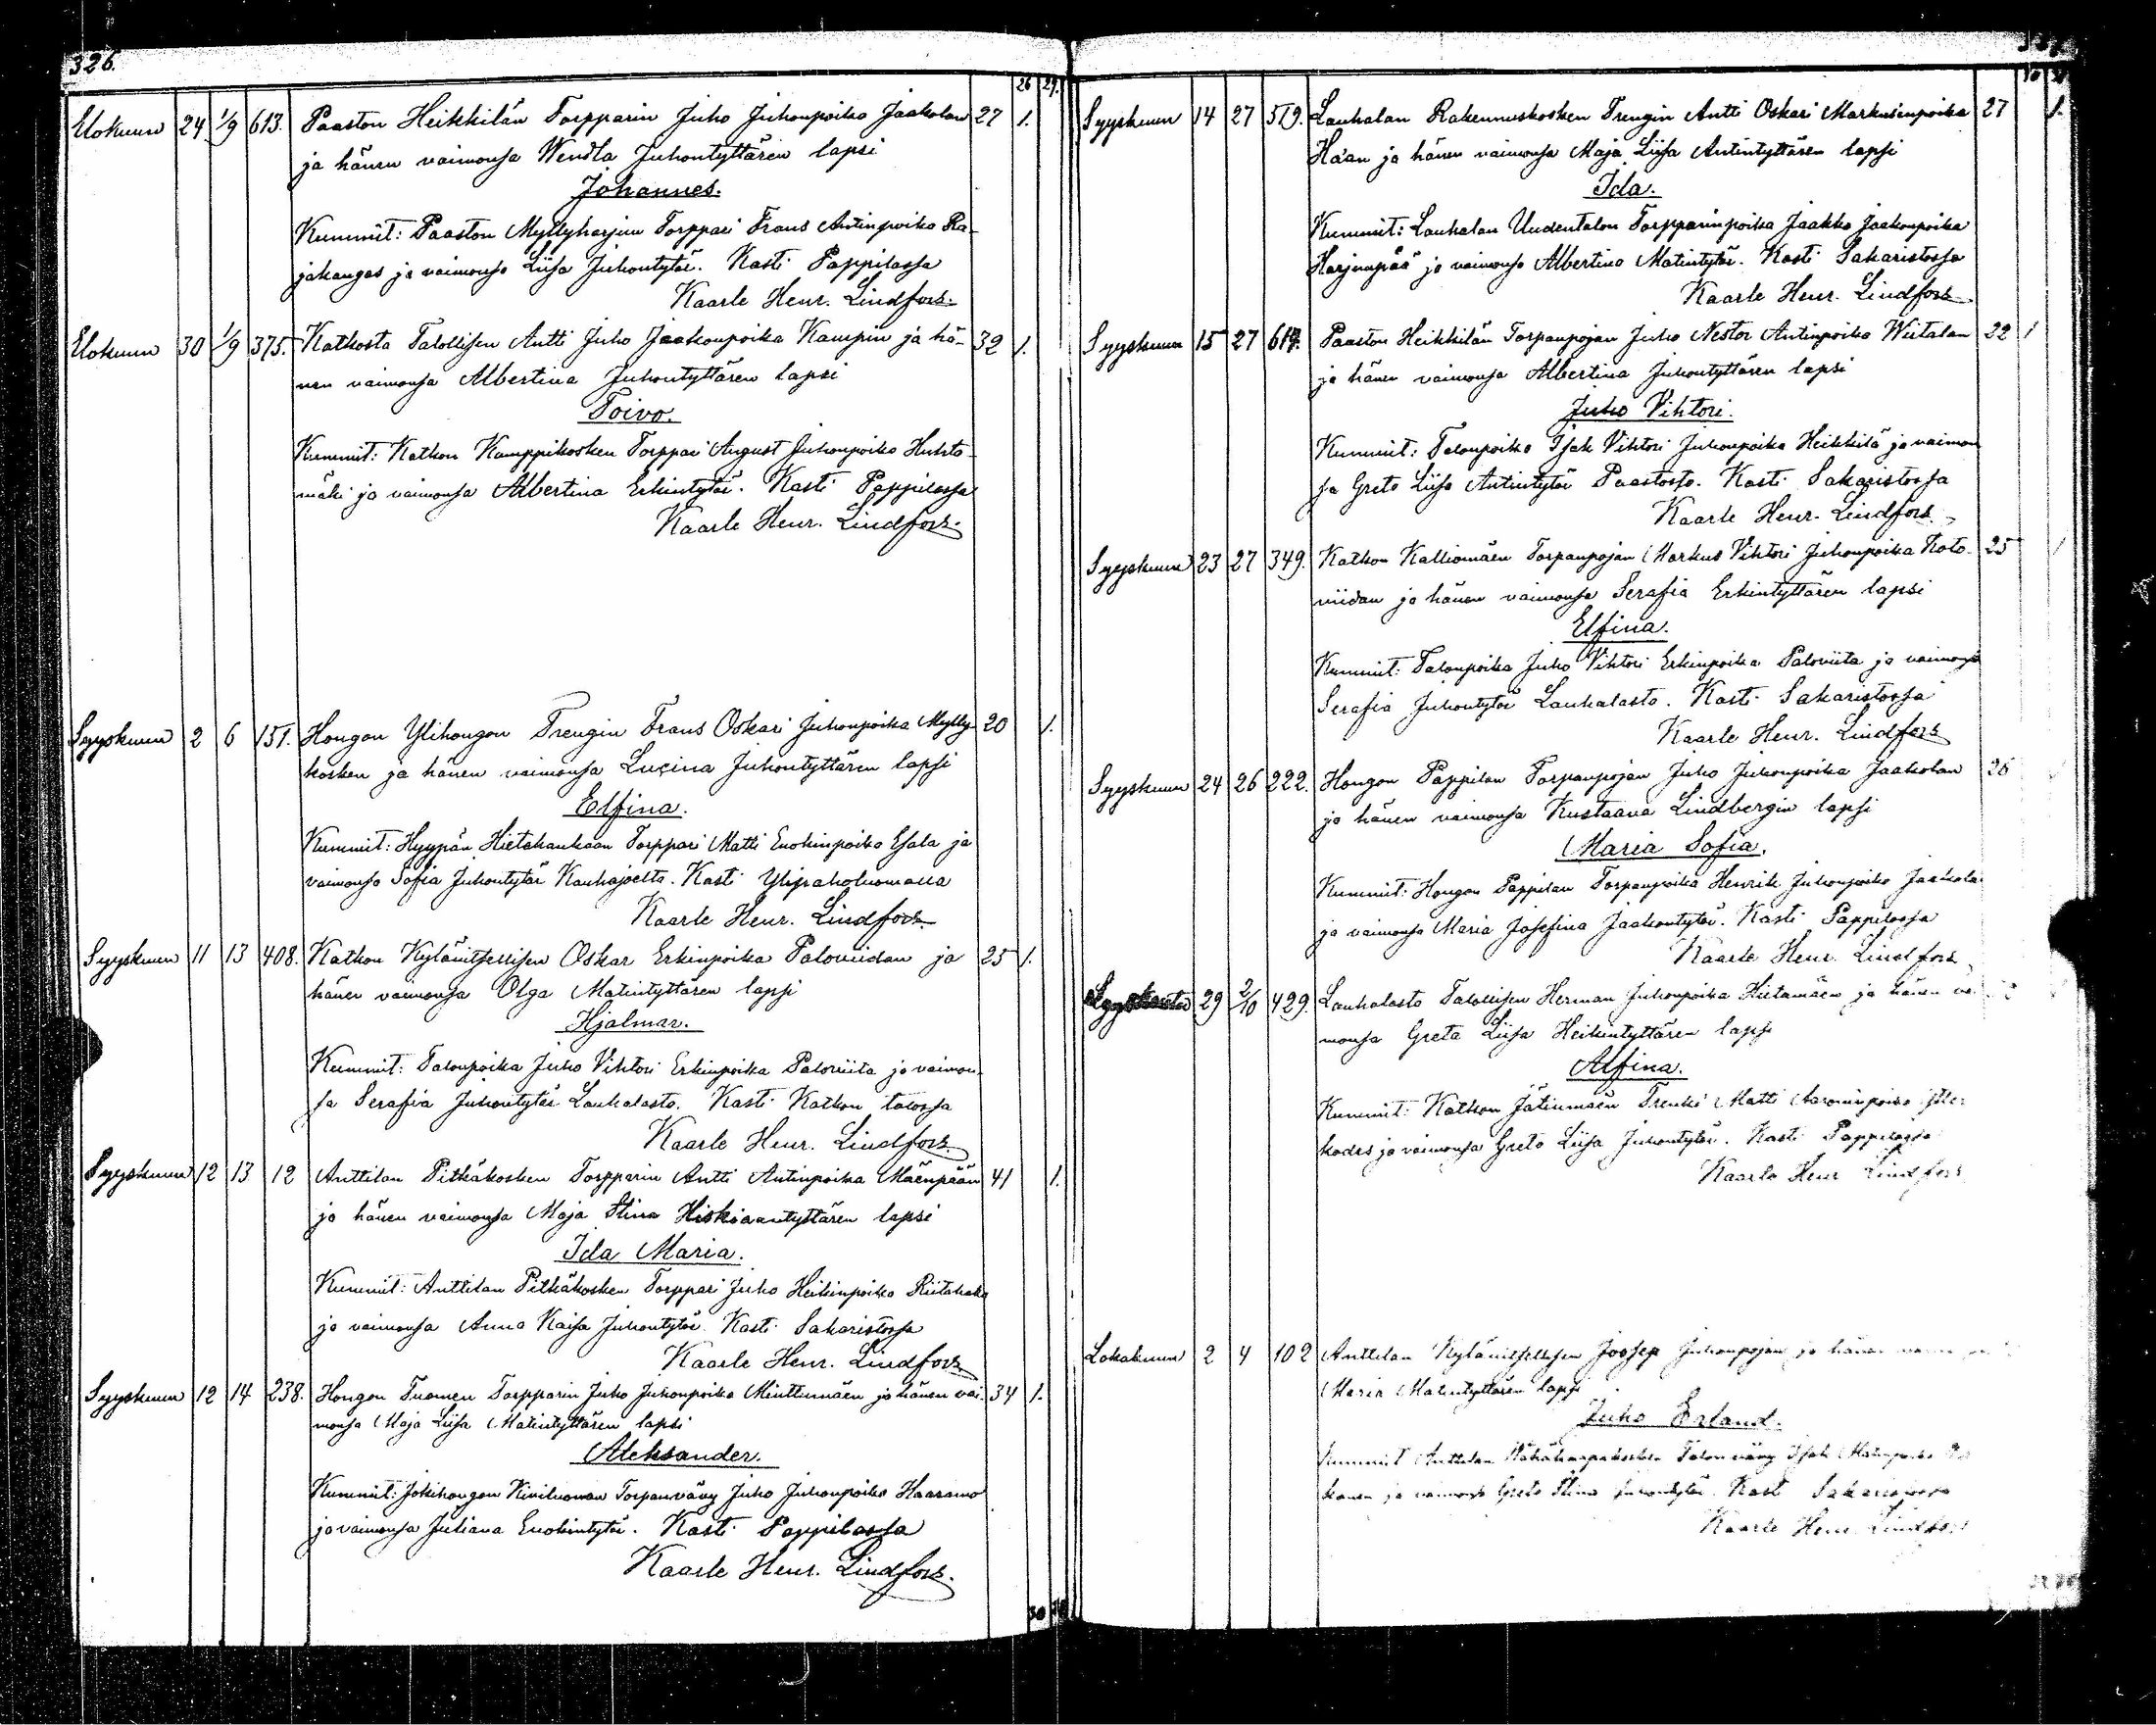 326.
26 29.
Elokuun 24 1/9 613. Paaston Heikkilän Torpparin Juho Juhonpoika Jaakolan 27 1.
ja hänen vaimonsa Wendla Juhontyttären lapsi
Johannes.
Kummit: Paaston Myllyharjun Torppari Frans Antinpoika Ra-
jakangas ja vaimonsa Liisa Juhontytär. Kasti Pappilassa
Kaarle Henr. Lindfors.
Elokuun 30 1/9 375. Katkosta Talollisen Antti Juho Jaakonpoika Kampin ja hä- 32 1.
nen vaimonsa Albertina Juhontyttären lapsi
Toivo.
Kummit: Katkon Kamppikosken Torppari August Juhonpoika Huhta-
mäki ja vaimonsa Albertina Erkintytär. Kasti Pappilassa
Kaarle Henr. Lindfors.
Syyskuun 2 6 151. Hongon Ylihongon Trengin Frans Oskari Juhonpoika Mylly- 20 1.
kosken ja hänen vaimonsa Lucina Juhontyttären lapsi
Elfina.
Kummit: Hyypän Hietakankaan Torppari Matti Enokinpoika Esala ja
vaimonsa Sofia Juhontytär Kauhajoelta. Kasti Ylipaholuomalla
Kaarle Henr. Lindfors.
Syyskuun 11 13 408. Katkon Kylänitsellisen Oskar Erkinpoika Paloviidan ja 25 1.
hänen vaimonsa Olga Matintyttären lapsi
Hjalmar.
Kummit: Talonpoika Juho Vihtori Erkinpoika Paloviita ja vaimon-
sa Serafia Juhontytär Lauhalasta. Kasti Katkon talossa
Kaarle Henr. Lindfors.
Syyskuun 12 13 12 Anttilan Pitkäkosken Torpparin Antti Antinpoika Mäenpään 41 1.
ja hänen vaimonsa Maja Stina Hiskiaantyttären lapsi
Ida Maria.
Kummit: Anttilan Pitkäkosken Torppari Juho Heikinpoika Riitahaka
ja vaimonsa Anna Kaisa Juhontytär. Kasti Sakaristossa
Kaarle Henr. Lindfors
Syyskuun 12 14 238. Hongon Tuomen Torpparin Juho Juhonpoika Minttumäen ja hänen vai- 34 1.
monsa Maja Liisa Matintyttären lapsi
Aleksander.
Kummit: Jokihongon Kiviluoman Torpanvävy Juho Juhonpoika Haaramo
ja vaimonsa Juliana Enokintytär. Kasti Pappilassa
Kaarle Henr. Lindfors.
Syyskuun 14 27 519. Lauhalan Rakennuskosken Trengin Antti Oskari Markusenpoika 27 1.
Haan ja hänen vaimonsa Maja Liisa Antintyttären lapsi
Ida.
Kummit: Lauhalan Uudentalon Torpparinpoika Jaakko Jaakonpoika
Harjunpää ja vaimonsa Albertina Matintytär. Kasti Sakaristossa
Kaarle Henr. Lindfors
Syyskuun 15 27 619. Paaston Heikkilän Torpanpojan Juho Nestor Antinpoika Wiitalan 22 1
ja hänen vaimonsa Albertina Juhontyttären lapsi
Juho Vihtori.
Kummit: Talonpoika Isak Vihtori Juhonpoika Heikkilä ja vaimon-
sa Greta Liisa Antintytär Paastosta. Kasti Sakaristossa
Kaarle Henr. Lindfors.
Syyskuun 23 27 349. Katkon Kalliomäen Torpanpojan Markus Vihtori Juhonpoika Koto- 25 1
viidan ja hänen vaimonsa Serafia Erkintyttären lapsi
Elfina.
Kummit: Talonpoika Juho Vihtori Erkinpoika Paloviita ja vaimonsa
Serafia Juhontytär Lauhalasta. Kasti Sakaristossa
Kaarle Henr. Lindfors
Syyskuun 24 26 222. Hongon Pappilan Torpanpojan Juho Juhonpoika Jaakolan 26
ja hänen vaimonsa Kustaava Lindbergin lapsi
Maria Sofia.
Kummit: Hongon Pappilan Torpanpoika Henrik Juhonpoika Jaakola
ja vaimonsa Maria Josefina Jaakontytär. Kasti Pappilassa
Kaarle Henr. Lindfors
29 2/10 429. Lauhalasta Talollisen Herman Juhonpoika Hietamäen ja hänen vai-
monsa Greta Liisa Heikintyttären lapsi
Alfina.
Kummit: Katkon Jätinmäen Trenki Matti Aaroninpoika
ja vaimonsa Greta Liisa Juhontytär. Kasti Pappilassa
Kaarle Henr Lindfors
Lokakuun 2 4 102 Anttilan Kylänitsellisen Joosep Juhonpojan ja hänen
Maria Matintyttären lapsi
Juho Erland.
Kummit Anttilan Talon vävy Isak
ja vaimonsa Greta Stina Juhontytär. Kasti Sakaristossa
Kaarle Henr Lindfors